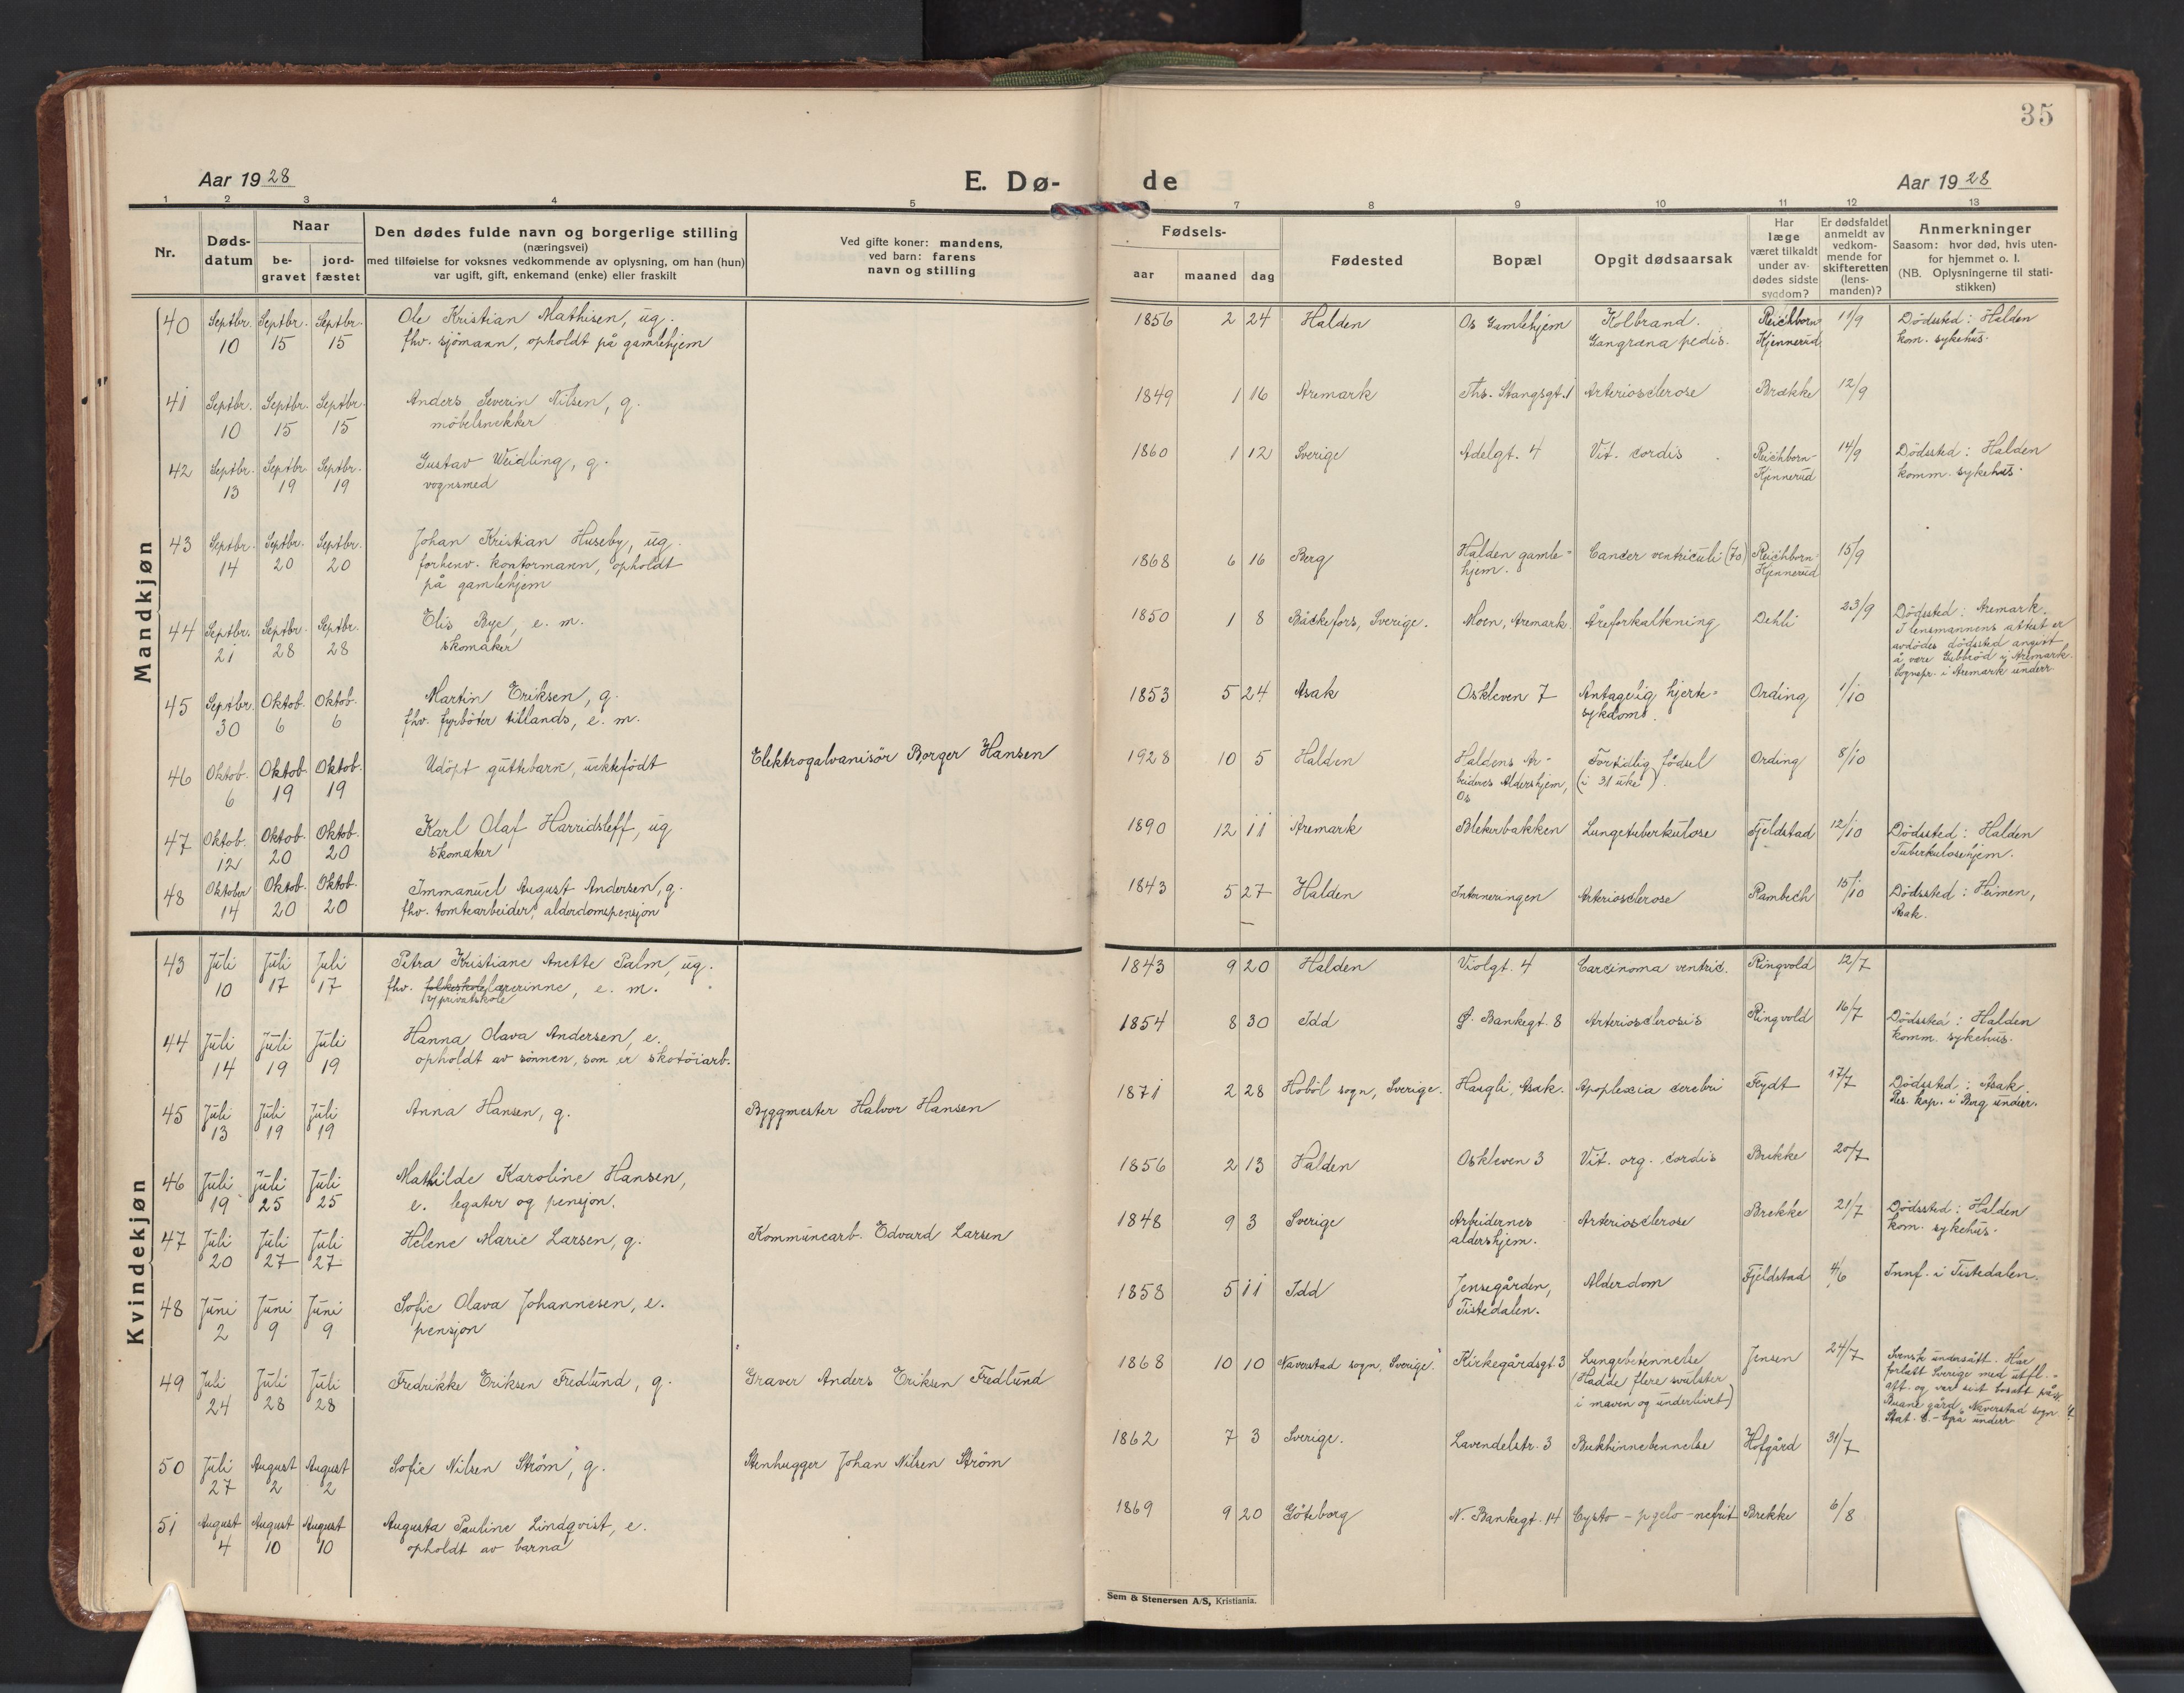 35
Aar 1928
E. Dø-
de
Aar 1928
1 2 3 4 5 7 8 9 10 11 12 13
Nr.
Døds-
datum
Naar
be-
gravet
jord-
fæstet
Den dødes fulde navn og borgerlige stilling
(næringsvei)
med tilføielse for voksnes vedkommende av oplysning, om han (hun)
var ugift, gift, enkemand (enke) eller fraskilt
Ved gifte koner: mandens,
ved barn: farens
navn og stilling
Fødsels-
aar maaned dag
Fødested
Bopæl
Opgit dødsaarsak
Har
læge
været tilkaldt
under av-
dødes sidste
sygdom?
Er dødsfaldet
anmeldt av
vedkom-
mende for
skifteretten
(lens-
manden)?
Anmerkninger
Saasom: hvor død, hvis uten-
for hjemmet o. l.
(NB. Oplysningerne til stati-
stikken)
Mandkjøn
40 Septbr. Septbr. Septbr. Ole Kristian Mathisen, ug. 1856 2 24 Halden Os Gamlehjem Kolbrand. Reichborn- 11/9 Dödssted: Halden
10 15 15 fhv. sjömann, opholdt på gamlehjem Gangræna pedis. Kjennerud kom. sykehus.
41 Septbr. Septbr. Septbr. Anders Severin Nilsen, g. 1849 1 16 Aremark Ths. Stangsgt. 1 Arteriosclerose Brække 12/9
10 15 15 möbelsnekker
42 Septbr. Septbr. Septbr. Gustav Weidling, g. 1860 1 12 Sverige Adelgt. 4 Vit. cordis Reichborn- 14/9 Dödssted: Halden
13 19 19 vognsmed Kjennerud komm. sykehus.
43 Septbr. Septbr. Septbr. Johan Kristian Huseby, ug. 1868 6 16 Berg Halden gamle- Cancer ventriculi (70) Reichborn- 15/9
14 20 20 forhenv. kontormann, opholdt hjem. Kjennerud
på gamlehjem
44 Septbr. Septbr. Septbr. Elis Bye, e. m. 1850 1 8 Bäckefors, Sverige. Moen, Aremark Åreforkalkning Dehli 23/9 Dödssted: Aremark.
21 28 28 skomaker I lensmannens attest er
avdödes dödssted angivt
å være Gubbröd i Aremark.
Sognepr. i Aremark underr.
45 Septbr. Oktob. Oktob. Martin Eriksen, g. 1853 5 24 Asak Oskleven 7 Antagelig hjerte- Ording 1/10
30 6 6 fhv. fyrböter tillands, e. m. sykdom.
46 Oktob. Oktob. Oktob. Udöpt guttebarn, uektefödt Elektrogalvanisör Borger Hansen 1928 10 5 Halden Haldens Ar- Fortidlig födsel Ording 8/10
6 19 19 beideres Aldershjem, (i 31 uke).
Os
47 Oktob. Oktob. Oktob. Karl Olaf Harridsleff, ug 1890 12 11 Aremark Blekerbakken Lungetuberkulose Fjeldstad 12/10 Dödssted: Halden
12 20 20 skomaker Tuberkulosehjem.
48 Oktober Oktob. Oktob. Immanuel August Andersen, g. 1843 5 27 Halden Interneringen Arteriosclerose Rambech 15/10 Dödssted: Heimen,
14 20 20 fhv. tomtearbeider, alderdomspensjon Asak.
Kvindekjøn
43 Juli Juli Juli Petra Kristiane Anette Palm, ug. 1843 9 20 Halden Violgt. 4 Carcinoma ventric. Ringvold 12/7
10 17 17 fhv. folkeskolelærerinne, e. m.
v/privatskole
44 Juli Juli Juli Hanna Olava Andersen, e. 1854 8 30 Idd Ø. Bankegt. 8 Arteriosclerosis Ringvold 16/7 Dödssted: Halden
14 19 19 opholdt av sönnen, som er skotöiarb. komm. sykehus.
45 Juli Juli Juli Anna Hansen, g. Byggmester Halvor Hansen 1871 2 28 Höböl sogn, Sverige. Haugli, Asak. Apoplexia cerebri Feydt 17/7 Dödssted: Asak.
13 19 19 Res. kap. i Berg underr.
46 Juli Juli Juli Mathilde Karoline Hansen, 1856 2 13 Halden Oskleven 3 Vit. org. cordis Brekke 20/7
19 25 25 e. legater og pensjon.
47 Juli Juli Juli Helene Marie Larsen, g. Kommunearb. Edvard Larsen 1848 9 3 Sverige Arbeidernes Arteriosclerose Brekke 21/7 Dödssted: Halden
20 27 27 aldershjem. kom. sykehus.
48 Juni Juni Juni Sofie Olava Johannesen, e. 1858 5 11 Idd Jensegården, Alderdom Fjeldstad 4/6 Innf. i Tistedalen.
2 9 9 pensjon Tistedalen.
49 Juli Juli Juli Fredrikke Eriksen Fredlund, g. Graver Anders Eriksen Fredlund 1868 10 10 Naverstad sogn, Sverige. Kirkegårdsgt. 3 Lungebetennelse Jensen 24/7 Svensk undersått. Har
24 28 28 (Hadde flere svulster forlatt Sverige med utfl.-
i maven og underlivet) att. og var sist bosatt på
Buane gård, Naverstad sogn
Stat. underr.
50 Juli August August Sofie Nilsen Ström, g. Stenhugger Johan Nilsen Ström 1862 7 3 Sverige. Lavendelstr. 3 Bukhinnebennelse Hofgård 31/7
27 2 2
51 August August August Augusta Pauline Lindqvist, e. 1869 9 20 Göteborg N. Bankegt. 14 Cysto-pyelo-nefrit Brekke 6/8
4 10 10 opholdt av barna
Sem & Stenersen A/S, Kristiania.